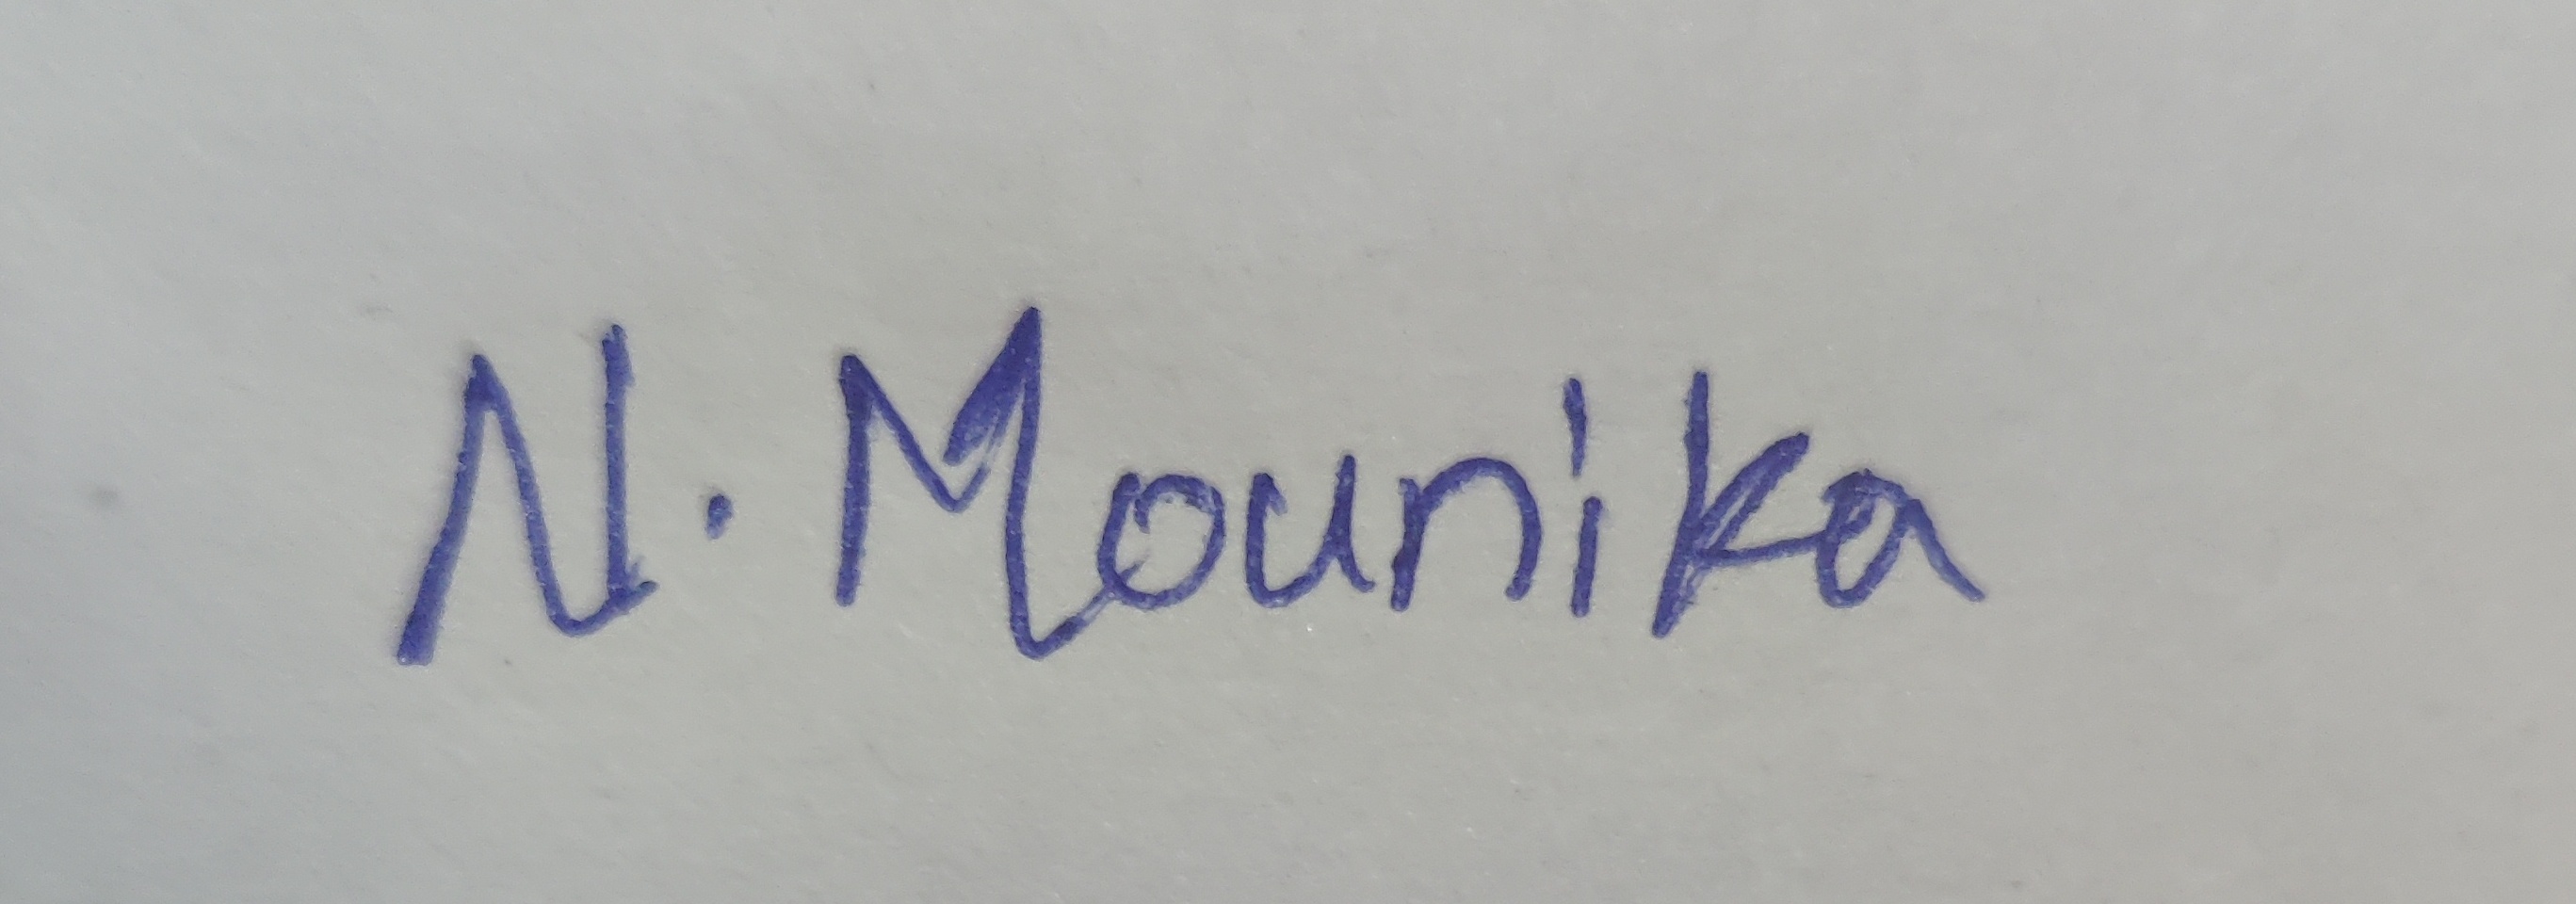 N. Mounika